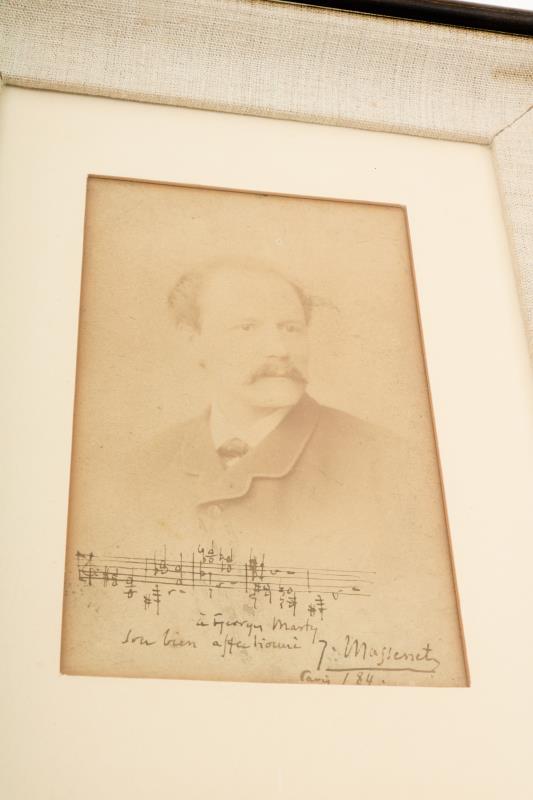 à Georges Marty
son bien affectionné J. Massenet
Paris / 84.